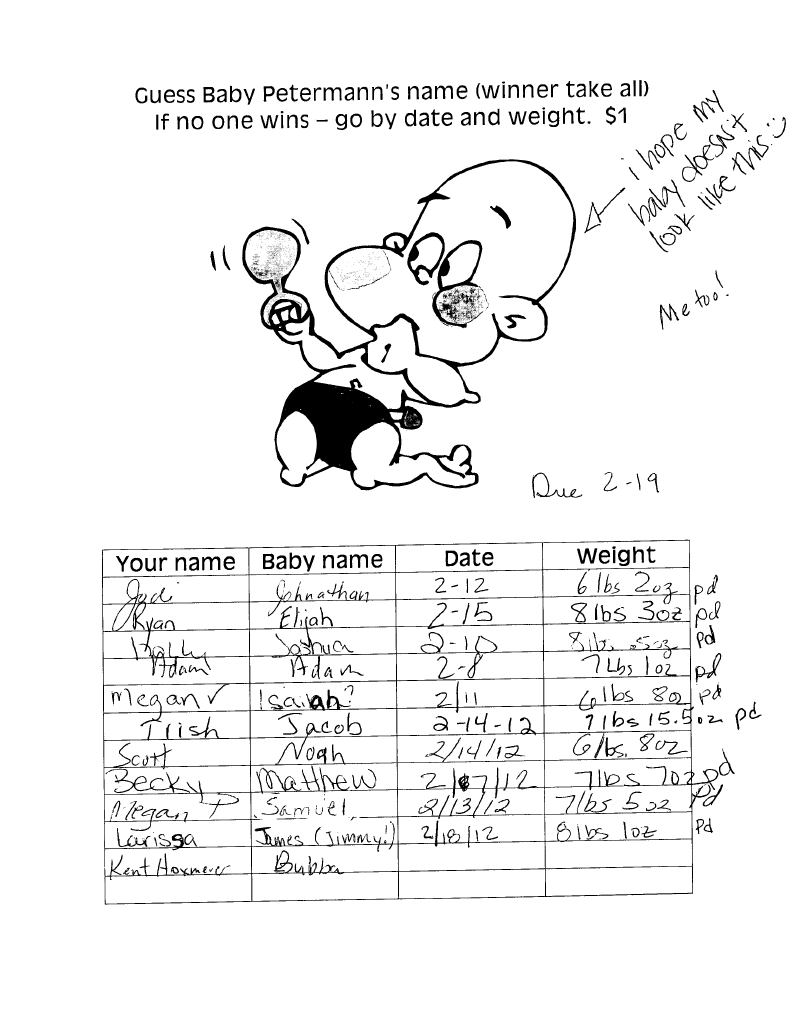 Guess Baby Petermann's name (winner take all)
If no one wins – go by date and weight. $1
i hope my
baby doesn't
look like this. :)
Me too!
Due 2-19
Your name Baby name Date Weight
Jodi Johnathan 2-12 6 lbs 2oz pd
Ryan Elijah 2-15 8 lbs 3oz pd
Holly Joshua 2-10 8 lbs 5oz pd
Adam Adam 2-8 7 Lbs 1oz pd
Megan V Isaiah? 2/11 6 lbs 8oz pd
Trish Jacob 2-14-12 7 lbs 15.5oz pd
Scott Noah 2/14/12 6 lbs. 8oz
Becky Matthew 2/7/12 7lbs 7oz pd
Megan P Samuel 2/13/12 7lbs 5oz Pd
Larissa James (Jimmy!) 2/18/12 8 lbs 1oz Pd
Kent Bubba